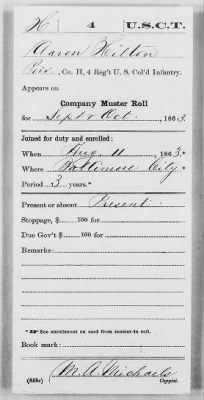 H 4 U.S.C.T.
Aaron Hilton
Pvt., Co. H, 4 Reg't U. S. Col'd Infantry.
Appears on
Company Muster Roll
for Sept & Oct., 1863.
Joined for duty and enrolled:
When Aug. 11, 1863.*
Where Baltimore City*
Period 3 years.*
Present or absent Present
Stoppage, $ 100 for
Due Gov't $ 100 for
Remarks:
* See enrollment on card from muster-in roll.
Book mark:
M. A. Michaels
(858c) Copyist.